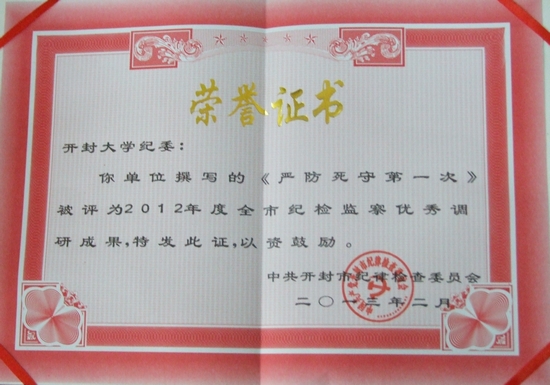 荣誉证书
开封大学纪委：
你单位撰写的《严防死守第一次》
被评为2012年度全市纪检监察优秀调
研成果,特发此证,以资鼓励。
中共开封市纪律检查委员会
二〇一三年二月